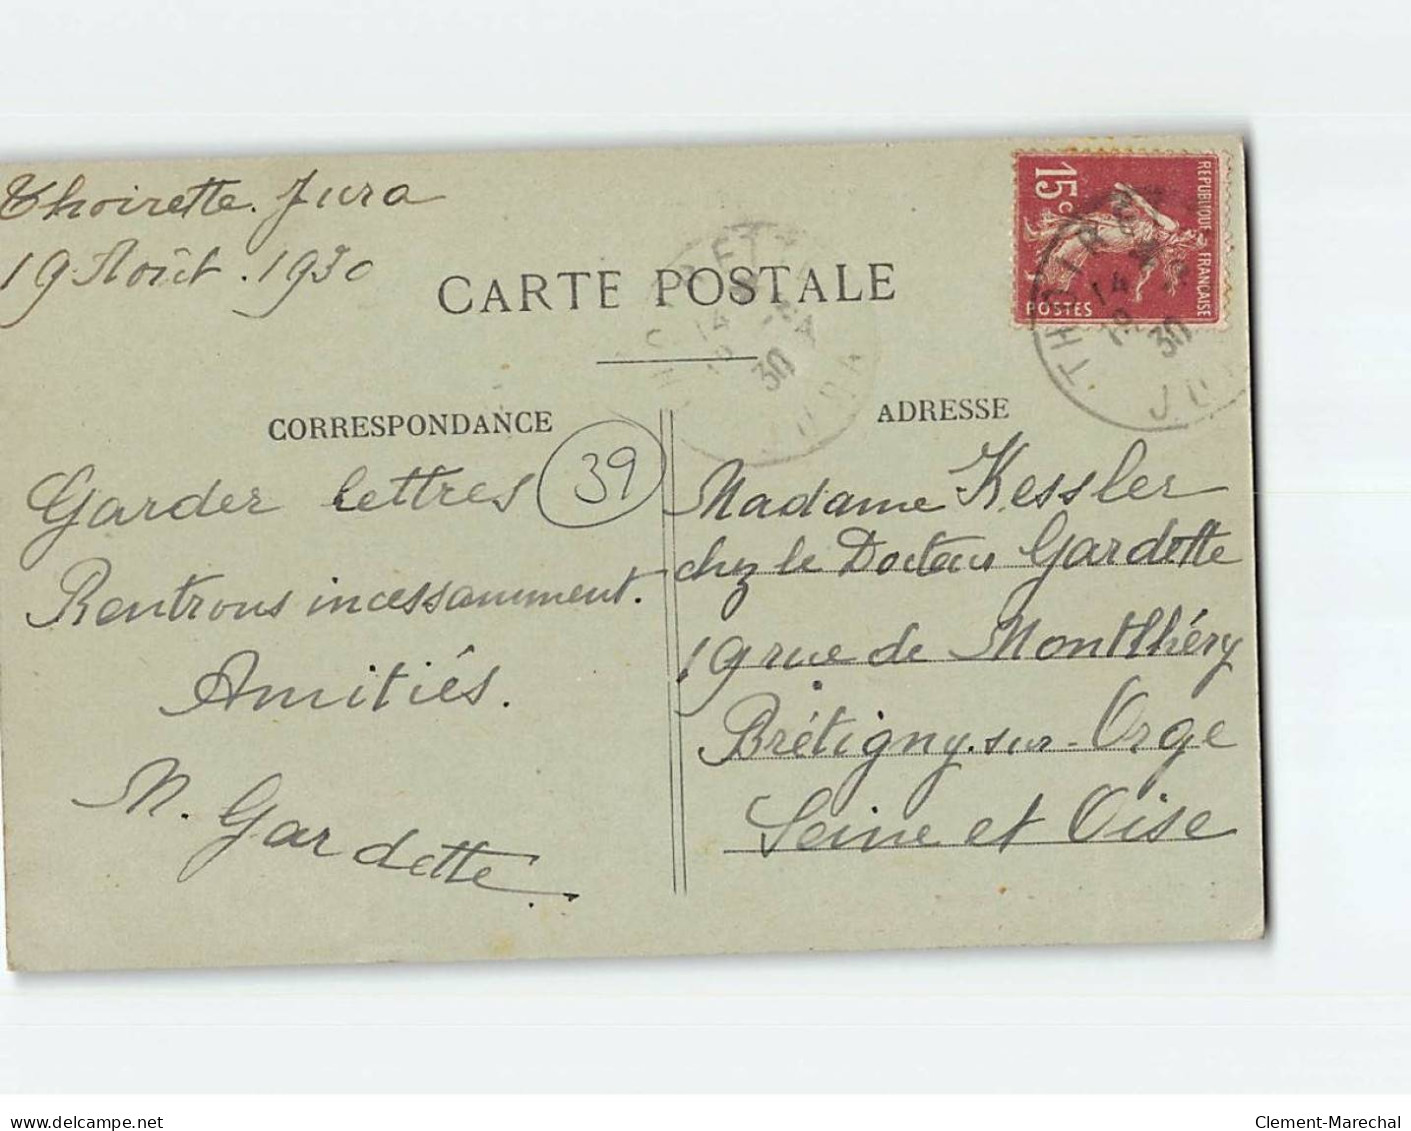 Thoirette. Jura
19 Août. 1930
CARTE POSTALE
15c
REPUBLIQUE FRANÇAISE
POSTES
14
19
30
JURA
14
30
JU
CORRESPONDANCE
ADRESSE
39
Garder lettres
Rentrons incessamment.
Amitiés.
M. Gardette.
Madame Kessler
chez le Docteur Gardette
19 rue de Montlhéry
Brétigny-sur-Orge
Seine et Oise
delcampe.net
Clement-Marechal